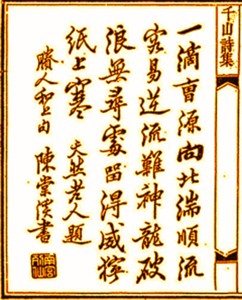 千山詩集
一滴曹源向北湍順流
容易逆流難神龍破
浪無尋處留得威稜
紙上寒 天然老人題
人和上 陳棠溪書